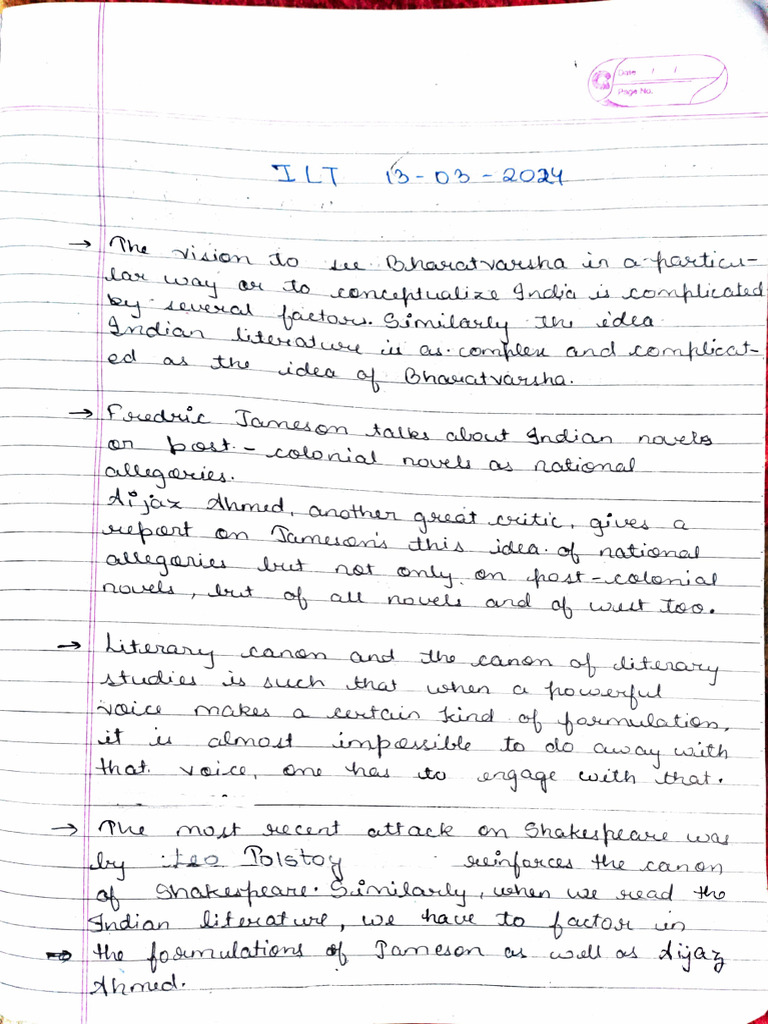 Date / /
Page No.
ILT 13-03-2024
→ The vision to see Bharatvarsha in a particu-
lar way or to conceptualize India is complicated
by several factors. Similarly the idea
Indian literature is as complex and complicat-
ed as the idea of Bharatvarsha.
→ Fredric Jameson talks about Indian novels
or post-colonial novels as national
allegories.
Aijaz Ahmed, another great critic, gives a
report on Jameson's this idea of national
allegories but not only on post-colonial
novels, but of all novels and of west too.
→ Literary canon and the canon of literary
studies is such that when a powerful
voice makes a certain kind of formulation,
it is almost impossible to do away with
that voice, one has to engage with that.
→ The most recent attack on Shakespeare was
by Leo Tolstoy reinforces the canon
of Shakespeare. Similarly, when we read the
Indian literature, we have to factor in
→ the formulations of Jameson as well as Aijaz
Ahmed.